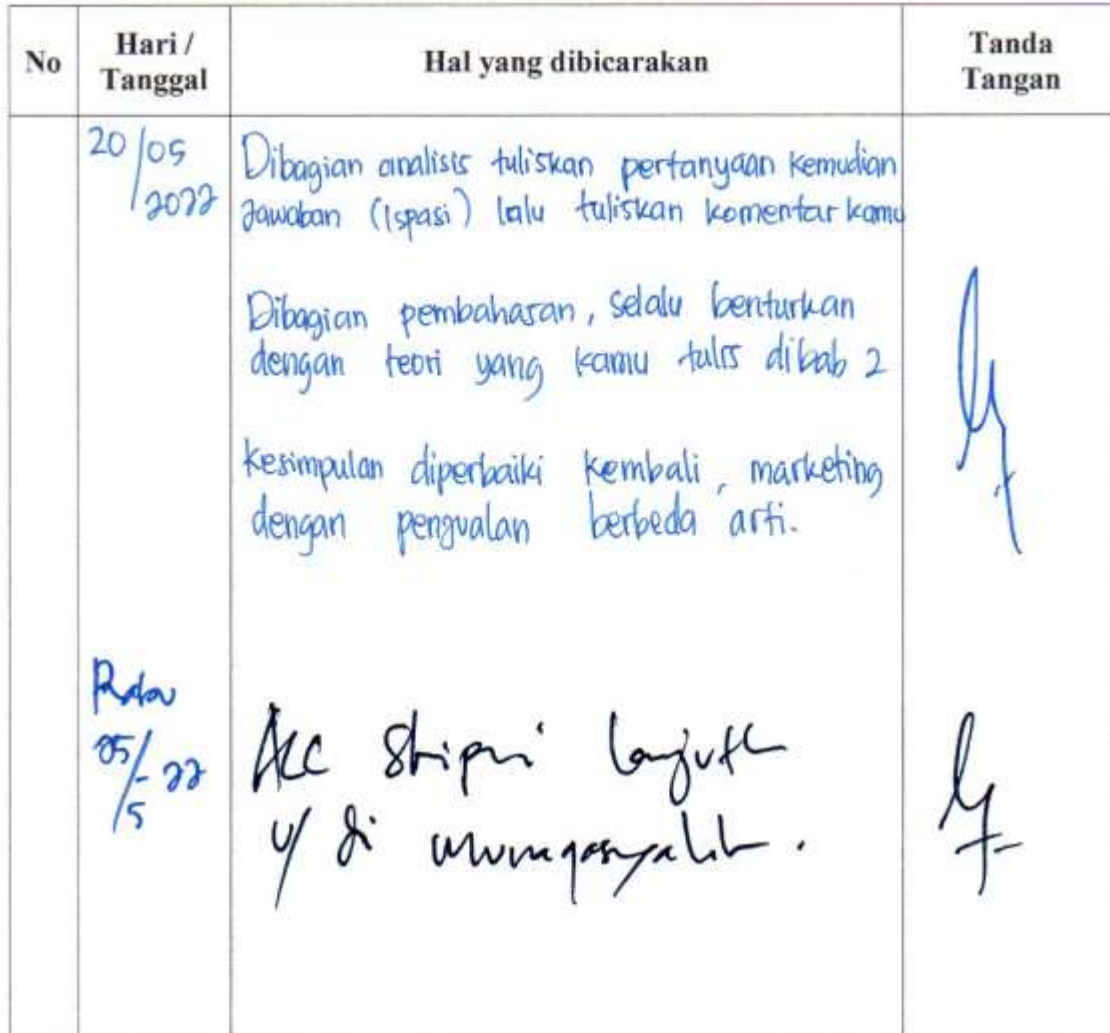 No
Hari /
Tanggal
Hal yang dibicarakan
Tanda
Tangan
20/05
2022
Dibagian analisis tuliskan pertanyaan kemudian
Jawaban (1spasi) lalu tuliskan komentar kamu
Dibagian pembahasan, selalu benturkan
dengan teori yang kamu tulis dibab 2
kesimpulan diperbaiki kembali, marketing
dengan penjualan berbeda arti.
Rabu
25/5-22
ACC Skripsi lanjutk
u/ di munaqasyahk.